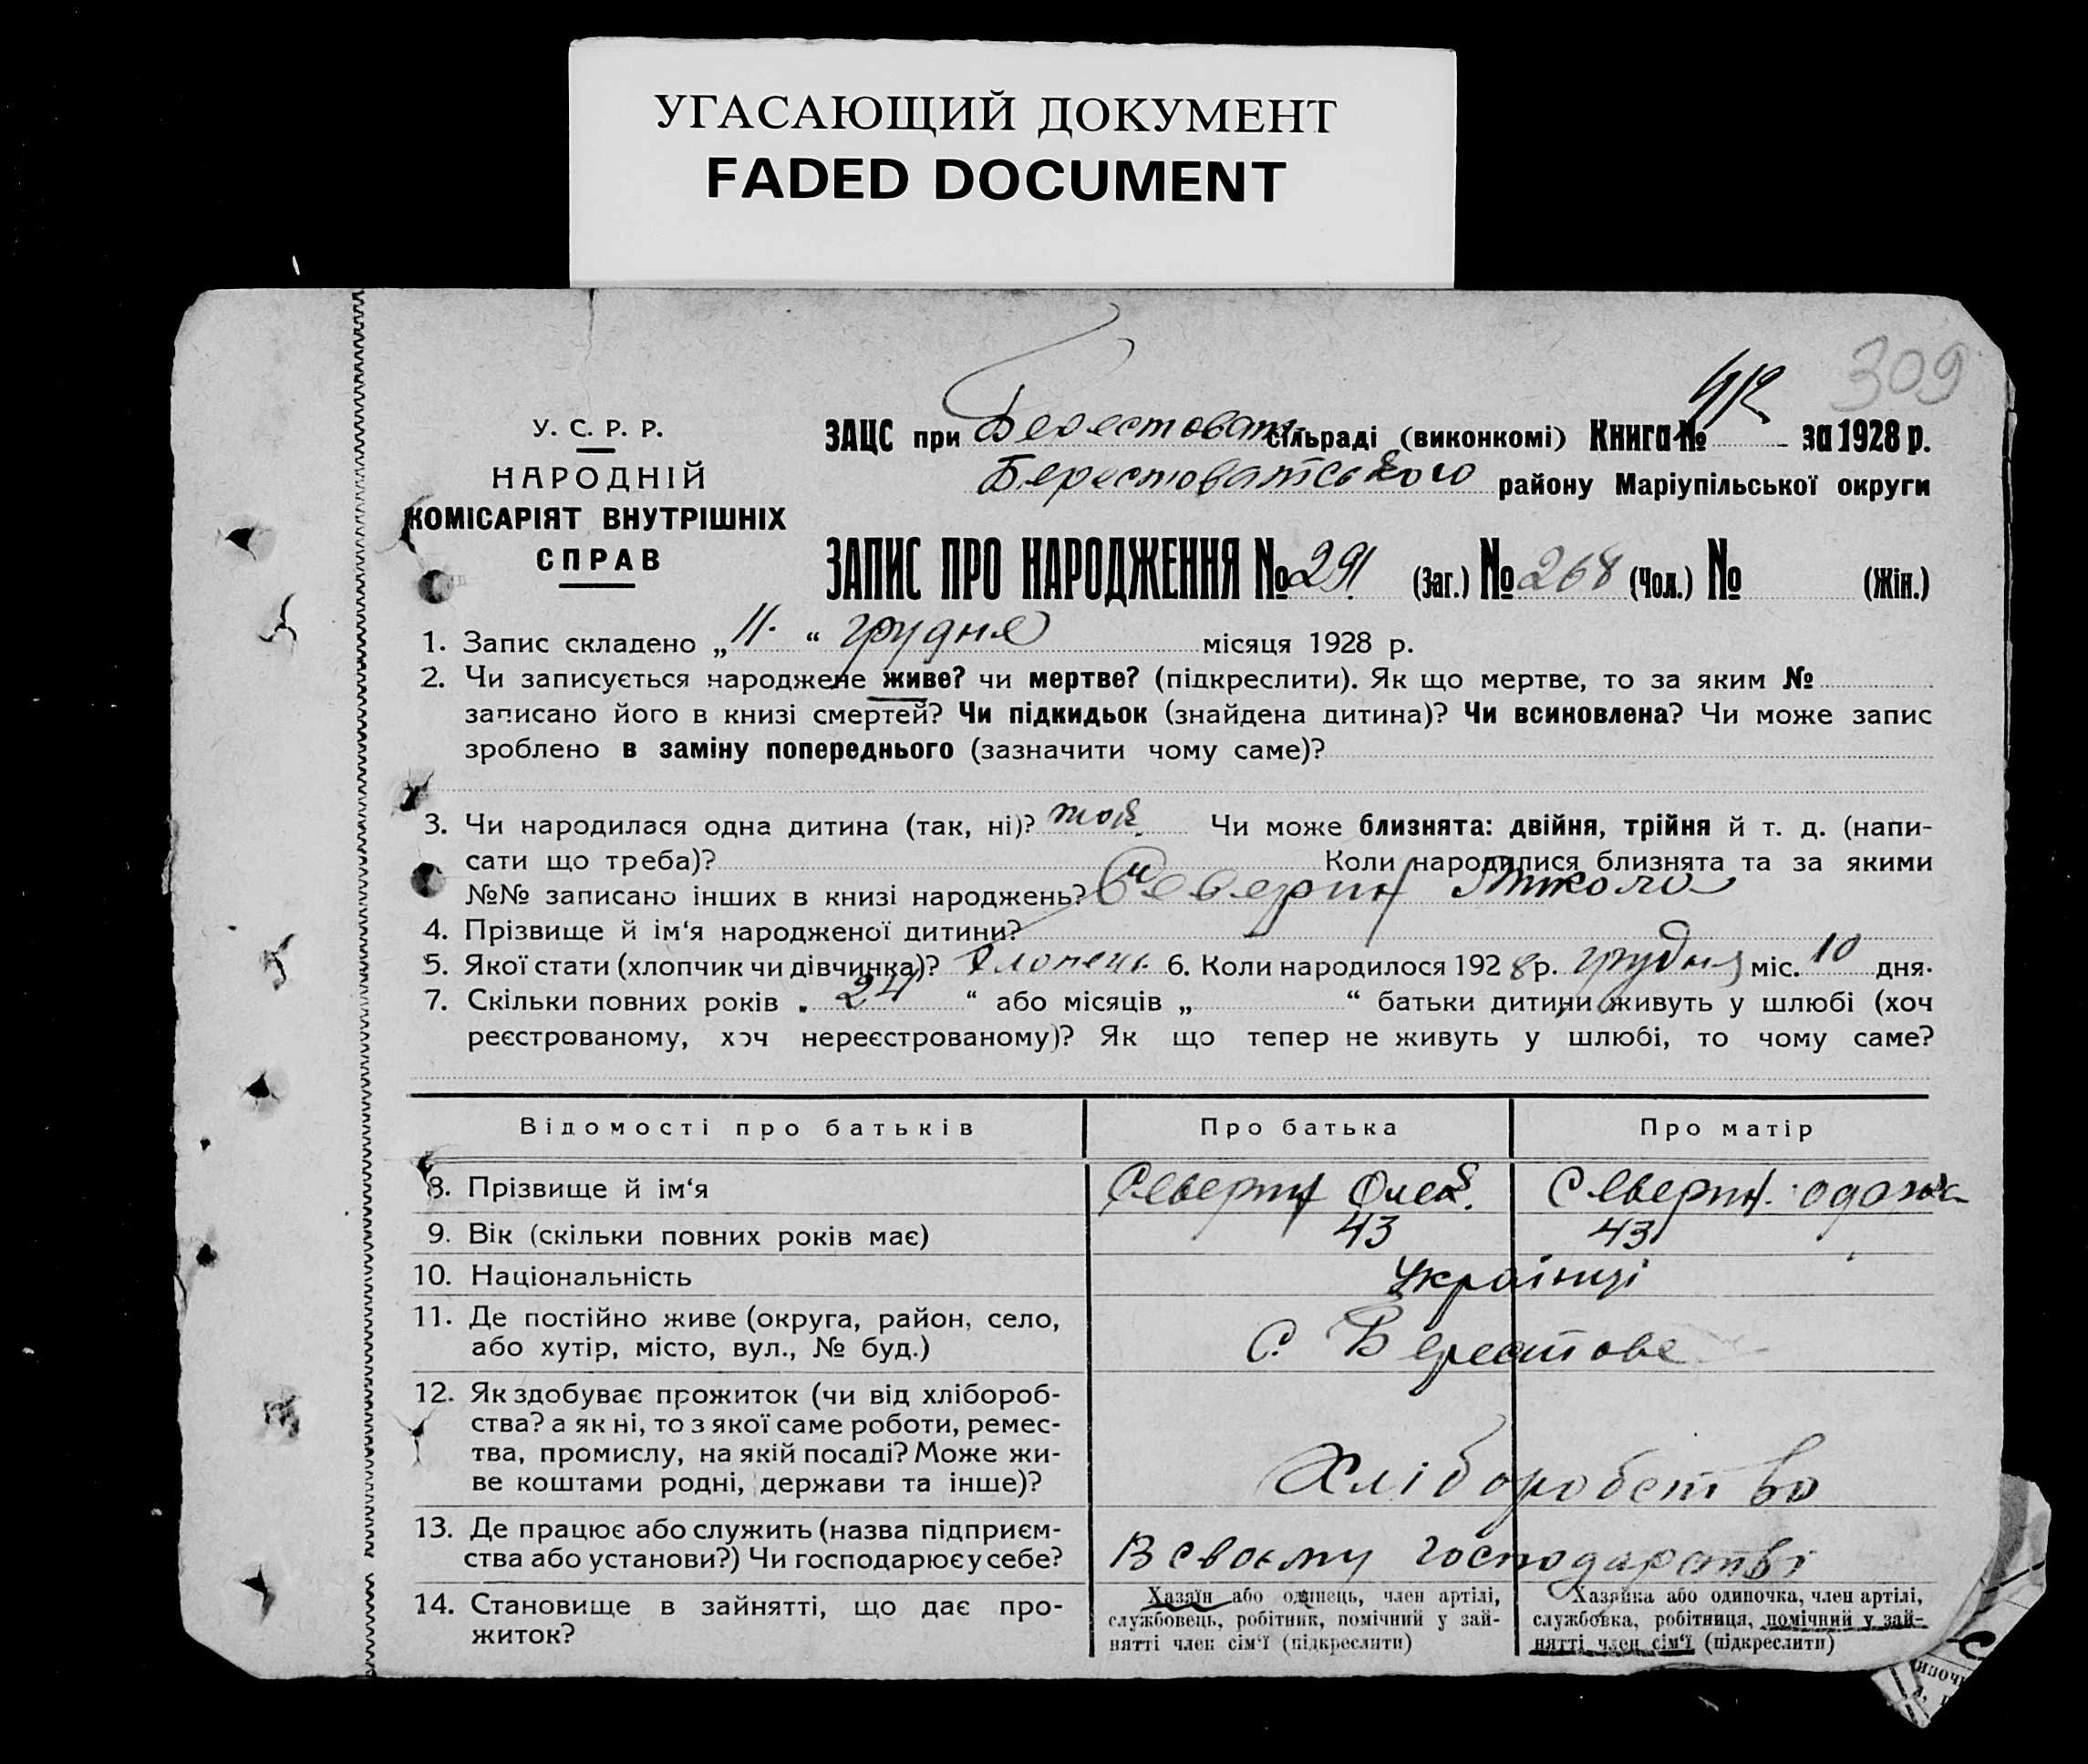 УГАСАЮЩИЙ ДОКУМЕНТ
FADED DOCUMENT
309
У. С. Р. Р.
НАРОДНІЙ
КОМІСАРІЯТ ВНУТРІШНІХ
СПРАВ
ЗАЦС при Берестоват. сільраді (виконкомі) Книга № за 1928 р.
Берестоватського району Маріупільської округи
ЗАПИС ПРО НАРОДЖЕННЯ № 291 (Заг.) № 268 (Чол.) № (Жін.)
1. Запис складено „ 11. “ грудня місяця 1928 р.
2. Чи записується народжене живе? чи мертве? (підкреслити). Як що мертве, то за яким №
записано його в книзі смертей? Чи підкидьок (знайдена дитина)? Чи всиновлена? Чи може запис
зроблено в заміну попереднього (зазначити чому саме)?
3. Чи народилася одна дитина (так, ні)? так. Чи може близнята: двійня, трійня й т. д. (напи-
сати що треба)? Коли народилися близнята та за якими
№№ записано інших в книзі народжень?
4. Прізвище й ім‘я народженої дитини? Северин Микола
5. Якої стати (хлопчик чи дівчинка)? Хлопець. 6. Коли народилося 1928 р. грудня міс. 10 дня.
7. Скільки повних років „ 24 “ або місяців „ “ батьки дитини живуть у шлюбі (хоч
реєстрованому, хоч нереєстрованому)? Як що тепер не живуть у шлюбі, то чому саме?
Відомості про батьків Про батька Про матір
8. Прізвище й ім‘я Северин Олек. Северин
9. Вік (скільки повних років має) 43 43
10. Національність Українці
11. Де постійно живе (округа, район, село,
або хутір, місто, вул., № буд.) С. Берестове
12. Як здобуває прожиток (чи від хлібороб-
ства? а як ні, то з якої саме роботи, ремес-
тва, промислу, на якій посаді? Може жи-
ве коштами родні, держави та інше)? Хліборобство
13. Де працює або служить (назва підприєм-
ства або установи?) Чи господарює у себе? В своєму господарстві
14. Становище в зайнятті, що дає про-
житок?
Хазяїн або одинець, член артілі,
службовець, робітник, помічний у зай-
нятті член сім‘ї (підкреслити)
Хазяйка або одиночка, член артілі,
службовка, робітниця, помічний у зай-
нятті член сім‘ї (підкреслити)